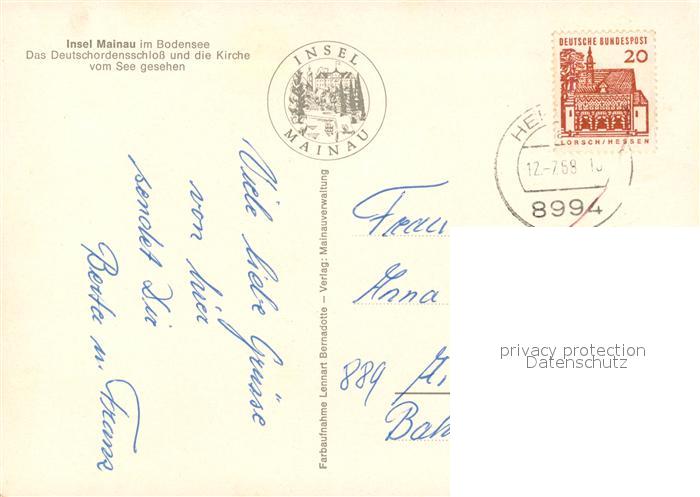 Insel Mainau im Bodensee
Das Deutschordensschloß und die Kirche
vom See gesehen
INSEL
MAINAU
DEUTSCHE BUNDESPOST
20
LORSCH/HESSEN
12.-7.68
8994
Viele liebe Grüsse
von hier
sendet Dir
Berta u. Franz
Farbaufnahme Lennart Bernadotte – Verlag: Mainauverwaltung
Frau
Anna
889
privacy protection
Datenschutz